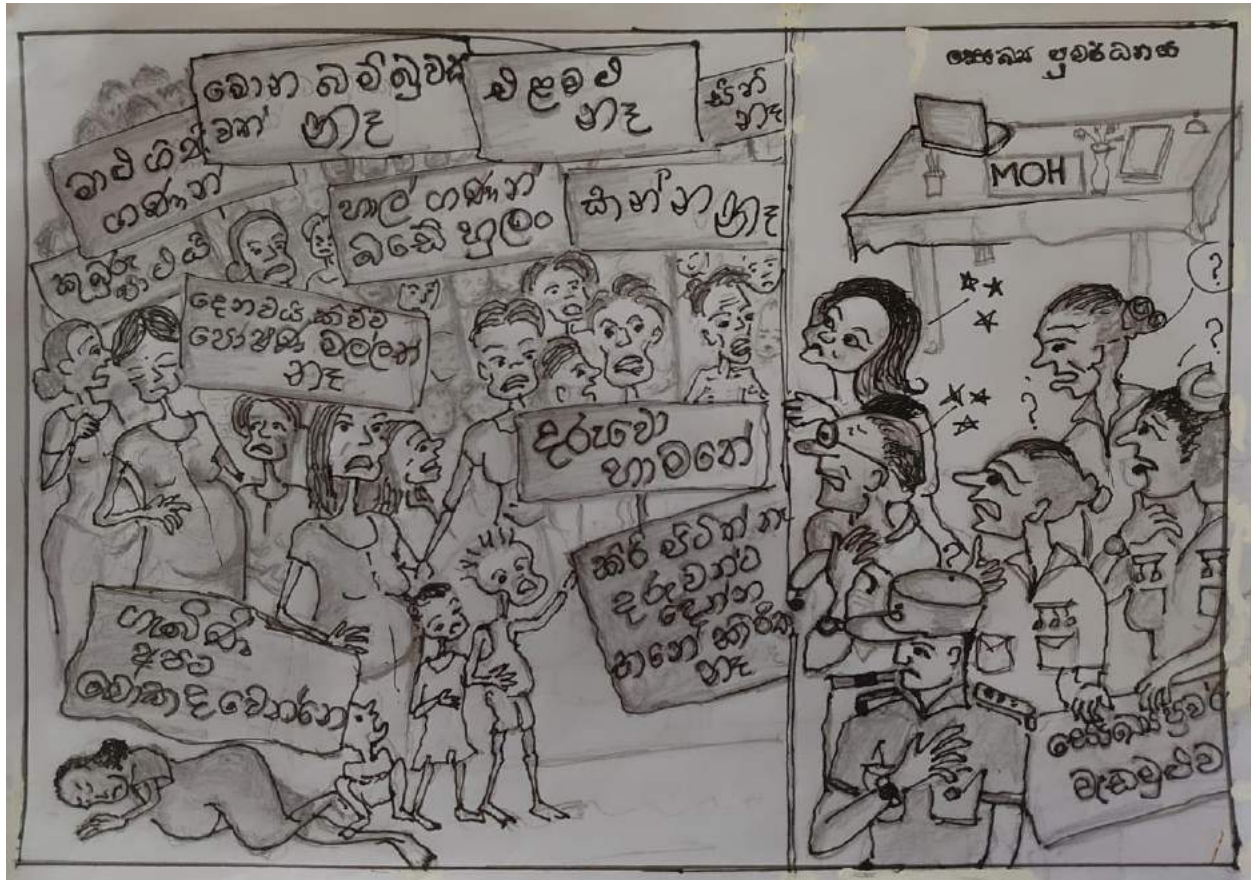 බොන බම්බුවක්
වත් නෑ
එළවළු
නෑ
සීනි
නෑ
මාළු ගිනි
ගණන්
හාල් ගණන්
බඩේ හුලං
කන්න නෑ
දෙනවයි කිව්ව
පෝෂණ මල්ලත්
නෑ
දරුවෝ
හාමතේ
කිරි පිටිත් නෑ
දරුවන්ට
දෙන්න
තනේ කිරිත්
නෑ
ගැබිණි
අපට
මොකද වෙන්නෙ
සෞඛ්‍ය ප්‍රවර්ධනය
MOH
?
?
?
?
සෞඛ්‍ය ප්‍රවර්
වැඩමුළුව